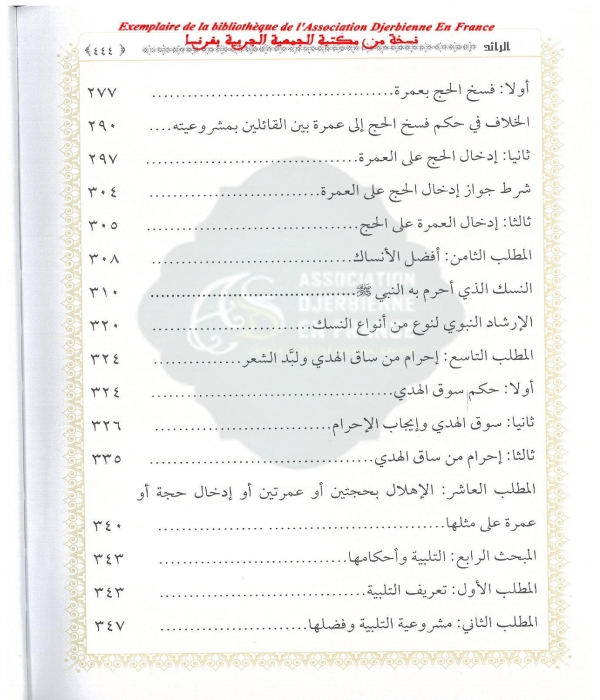 Exemplaire de la bibliothèque de l'Association Djerbienne En France
نسخة من مكتبة الجمعية الجربية بفرنسا
الرائد ﴿٤٤٤﴾
أولا: فسخ الحج بعمرة........................................ ٢٧٧
الخلاف في حكم فسخ الحج إلى عمرة بين القائلين بمشروعيته.... ٢٩٠
ثانيا: إدخال الحج على العمرة................................ ٢٩٧
شرط جواز إدخال الحج على العمرة........................... ٣٠٤
ثالثا: إدخال العمرة على الحج................................ ٣٠٥
المطلب الثامن: أفضل الأنساك................................ ٣٠٨
النسك الذي أحرم به النبي ﷺ................................ ٣١٠
الإرشاد النبوي لنوع من أنواع النسك........................... ٣٢٠
المطلب التاسع: إحرام من ساق الهدي ولبَّد الشعر............... ٣٢٤
أولا: حكم سوق الهدي........................................ ٣٢٤
ثانيا: سوق الهدي وإيجاب الإحرام............................ ٣٢٦
ثالثا: إحرام من ساق الهدي................................... ٣٣٥
المطلب العاشر: الإهلال بحجتين أو عمرتين أو إدخال حجة أو
عمرة على مثلها............................................. ٣٤٠
المبحث الرابع: التلبية وأحكامها.............................. ٣٤٣
المطلب الأول: تعريف التلبية................................. ٣٤٣
المطلب الثاني: مشروعية التلبية وفضلها....................... ٣٤٧
ASSOCIATION
DJERBIENNE
EN FRANCE